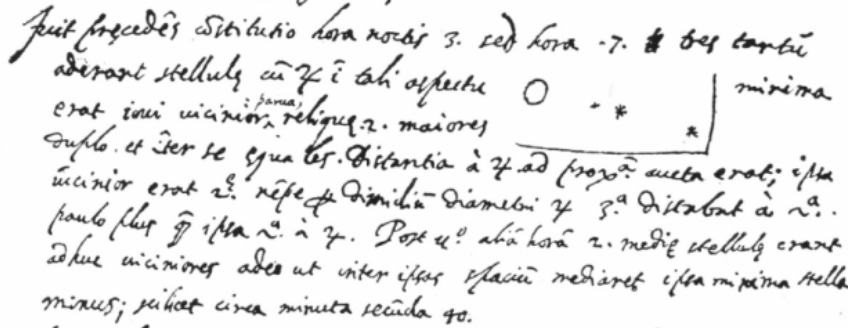 fuit pręcedẽs cõstitutio hora noctis 3. sed hora .7. tres tantũ
aderant stellulę cũ ♃ ĩ tali aspectu minima
erat ioui uicinior, parua, relique 2. maiores
duplo. et ĩter se equales. Distantia à ♃ ad proxᵃ. aucta erat; ipsa
uicinior erat 2ᵉ. nẽpe p dimidiũ diametri ♃ 3.ᵃ distabat à 2ᵃ.
paulo plus q̃ ipsa 2ᵃ. à ♃. Post uᵒ. aliã horã 2. medię stellulę erant
adhuc uiciniores adeo ut inter ipsas spaciũ mediaret ipsa minima stella
minus; scilicet circa minuta secũda 40.